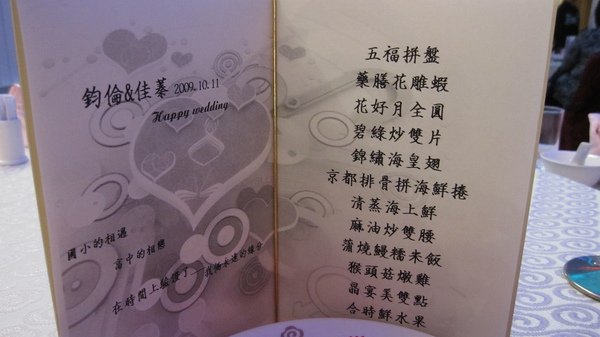 鈞倫&佳蓁 2009.10.11
Happy wedding
國小的相遇
高中的相戀
在時間上驗證了 我倆永遠的緣分
五福拼盤
藥膳花雕蝦
花好月全圓
碧綠炒雙片
錦繡海皇翅
京都排骨拼海鮮捲
清蒸海上鮮
麻油炒雙腰
蒲燒鰻糯米飯
猴頭菇燉雞
晶宴美雙點
合時鮮水果